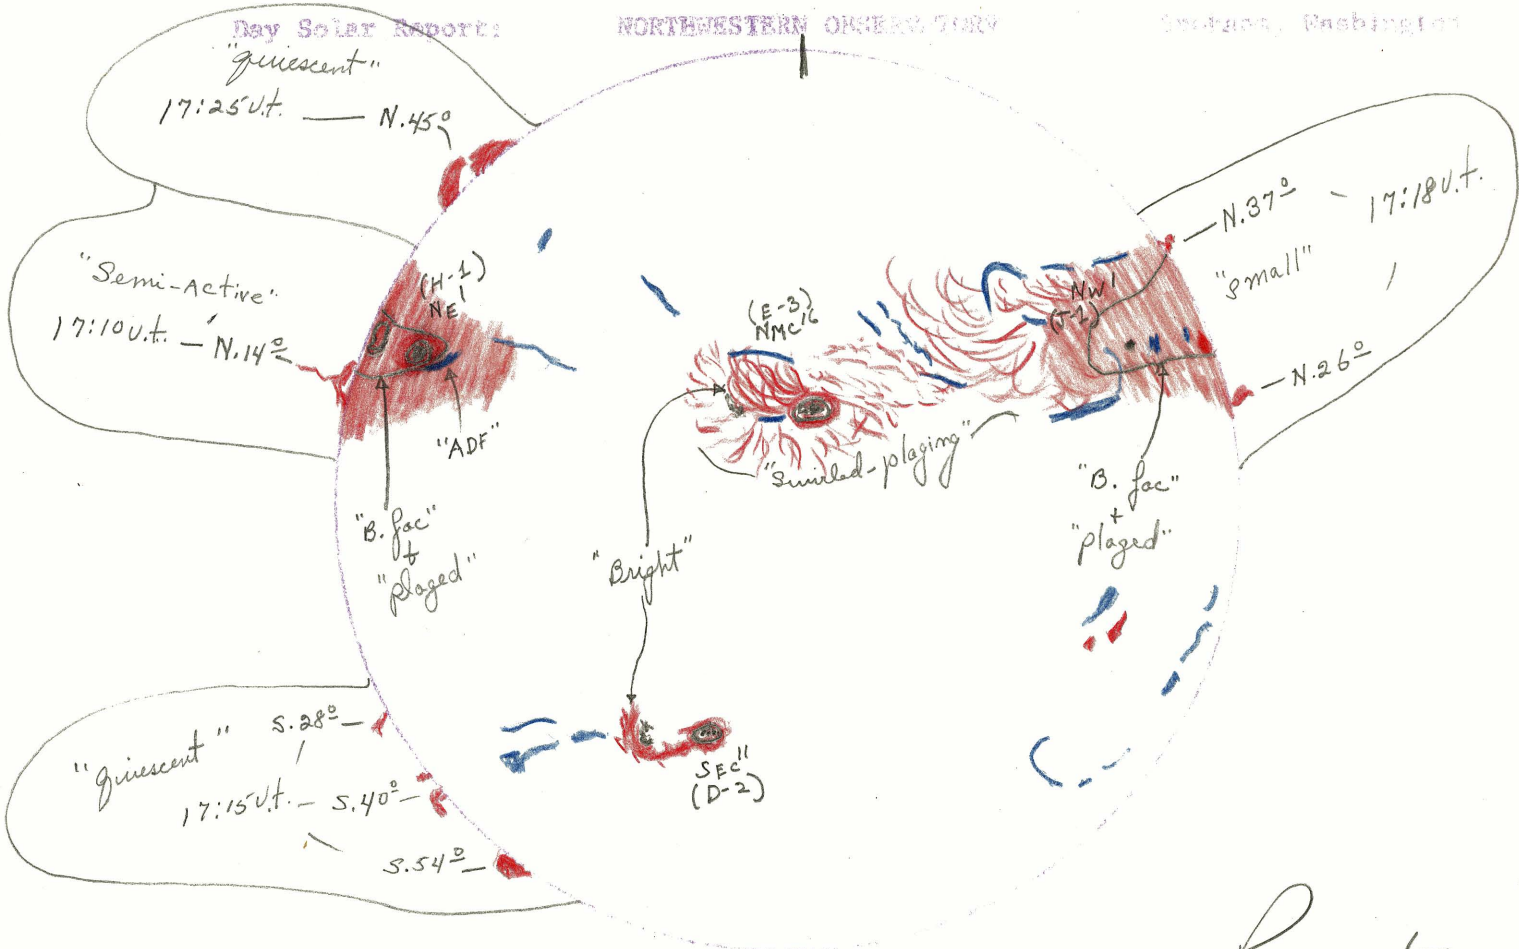 Day Solar Report:
NORTHWESTERN
Washington
"quiescent"
17:25 U.t. — N.45°
"Semi-Active"
17:10 U.t. — N.14°
(H-1)
NE1
"ADF"
"B. fac"
+
"plaged"
(E-3)
NMC16
"swirled-plaging"
"Bright"
NW1
N.37° - 17:18 U.t.
"small"
N.26°
"B. fac"
+
"plaged"
"quiescent"
S.28°
17:15 U.t. — S.40°
S.54°
SEC11
(D-2)